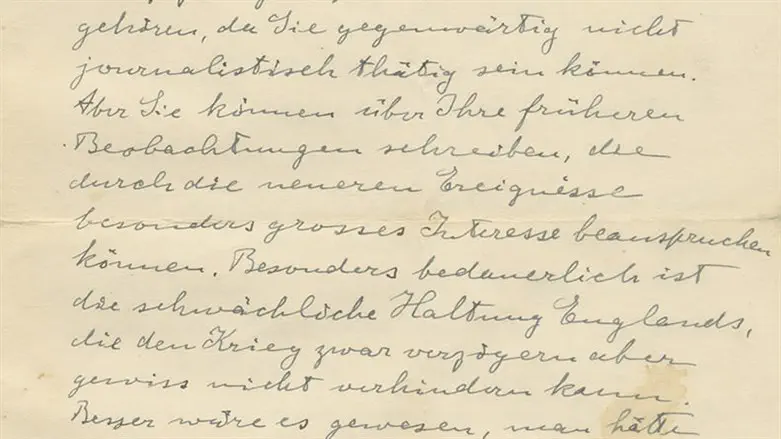 gehören, da Sie gegenwärtig nicht
journalistisch thätig sein können.
Aber Sie können über Ihre früheren
Beobachtungen schreiben, die
durch die neueren Ereignisse
besonders grosses Interesse beanspruchen
können. Besonders bedauerlich ist
die schwächliche Haltung Englands,
die den Krieg zwar verzögern aber
gewiss nicht verhindern kann.
Besser wäre es gewesen, man hätte